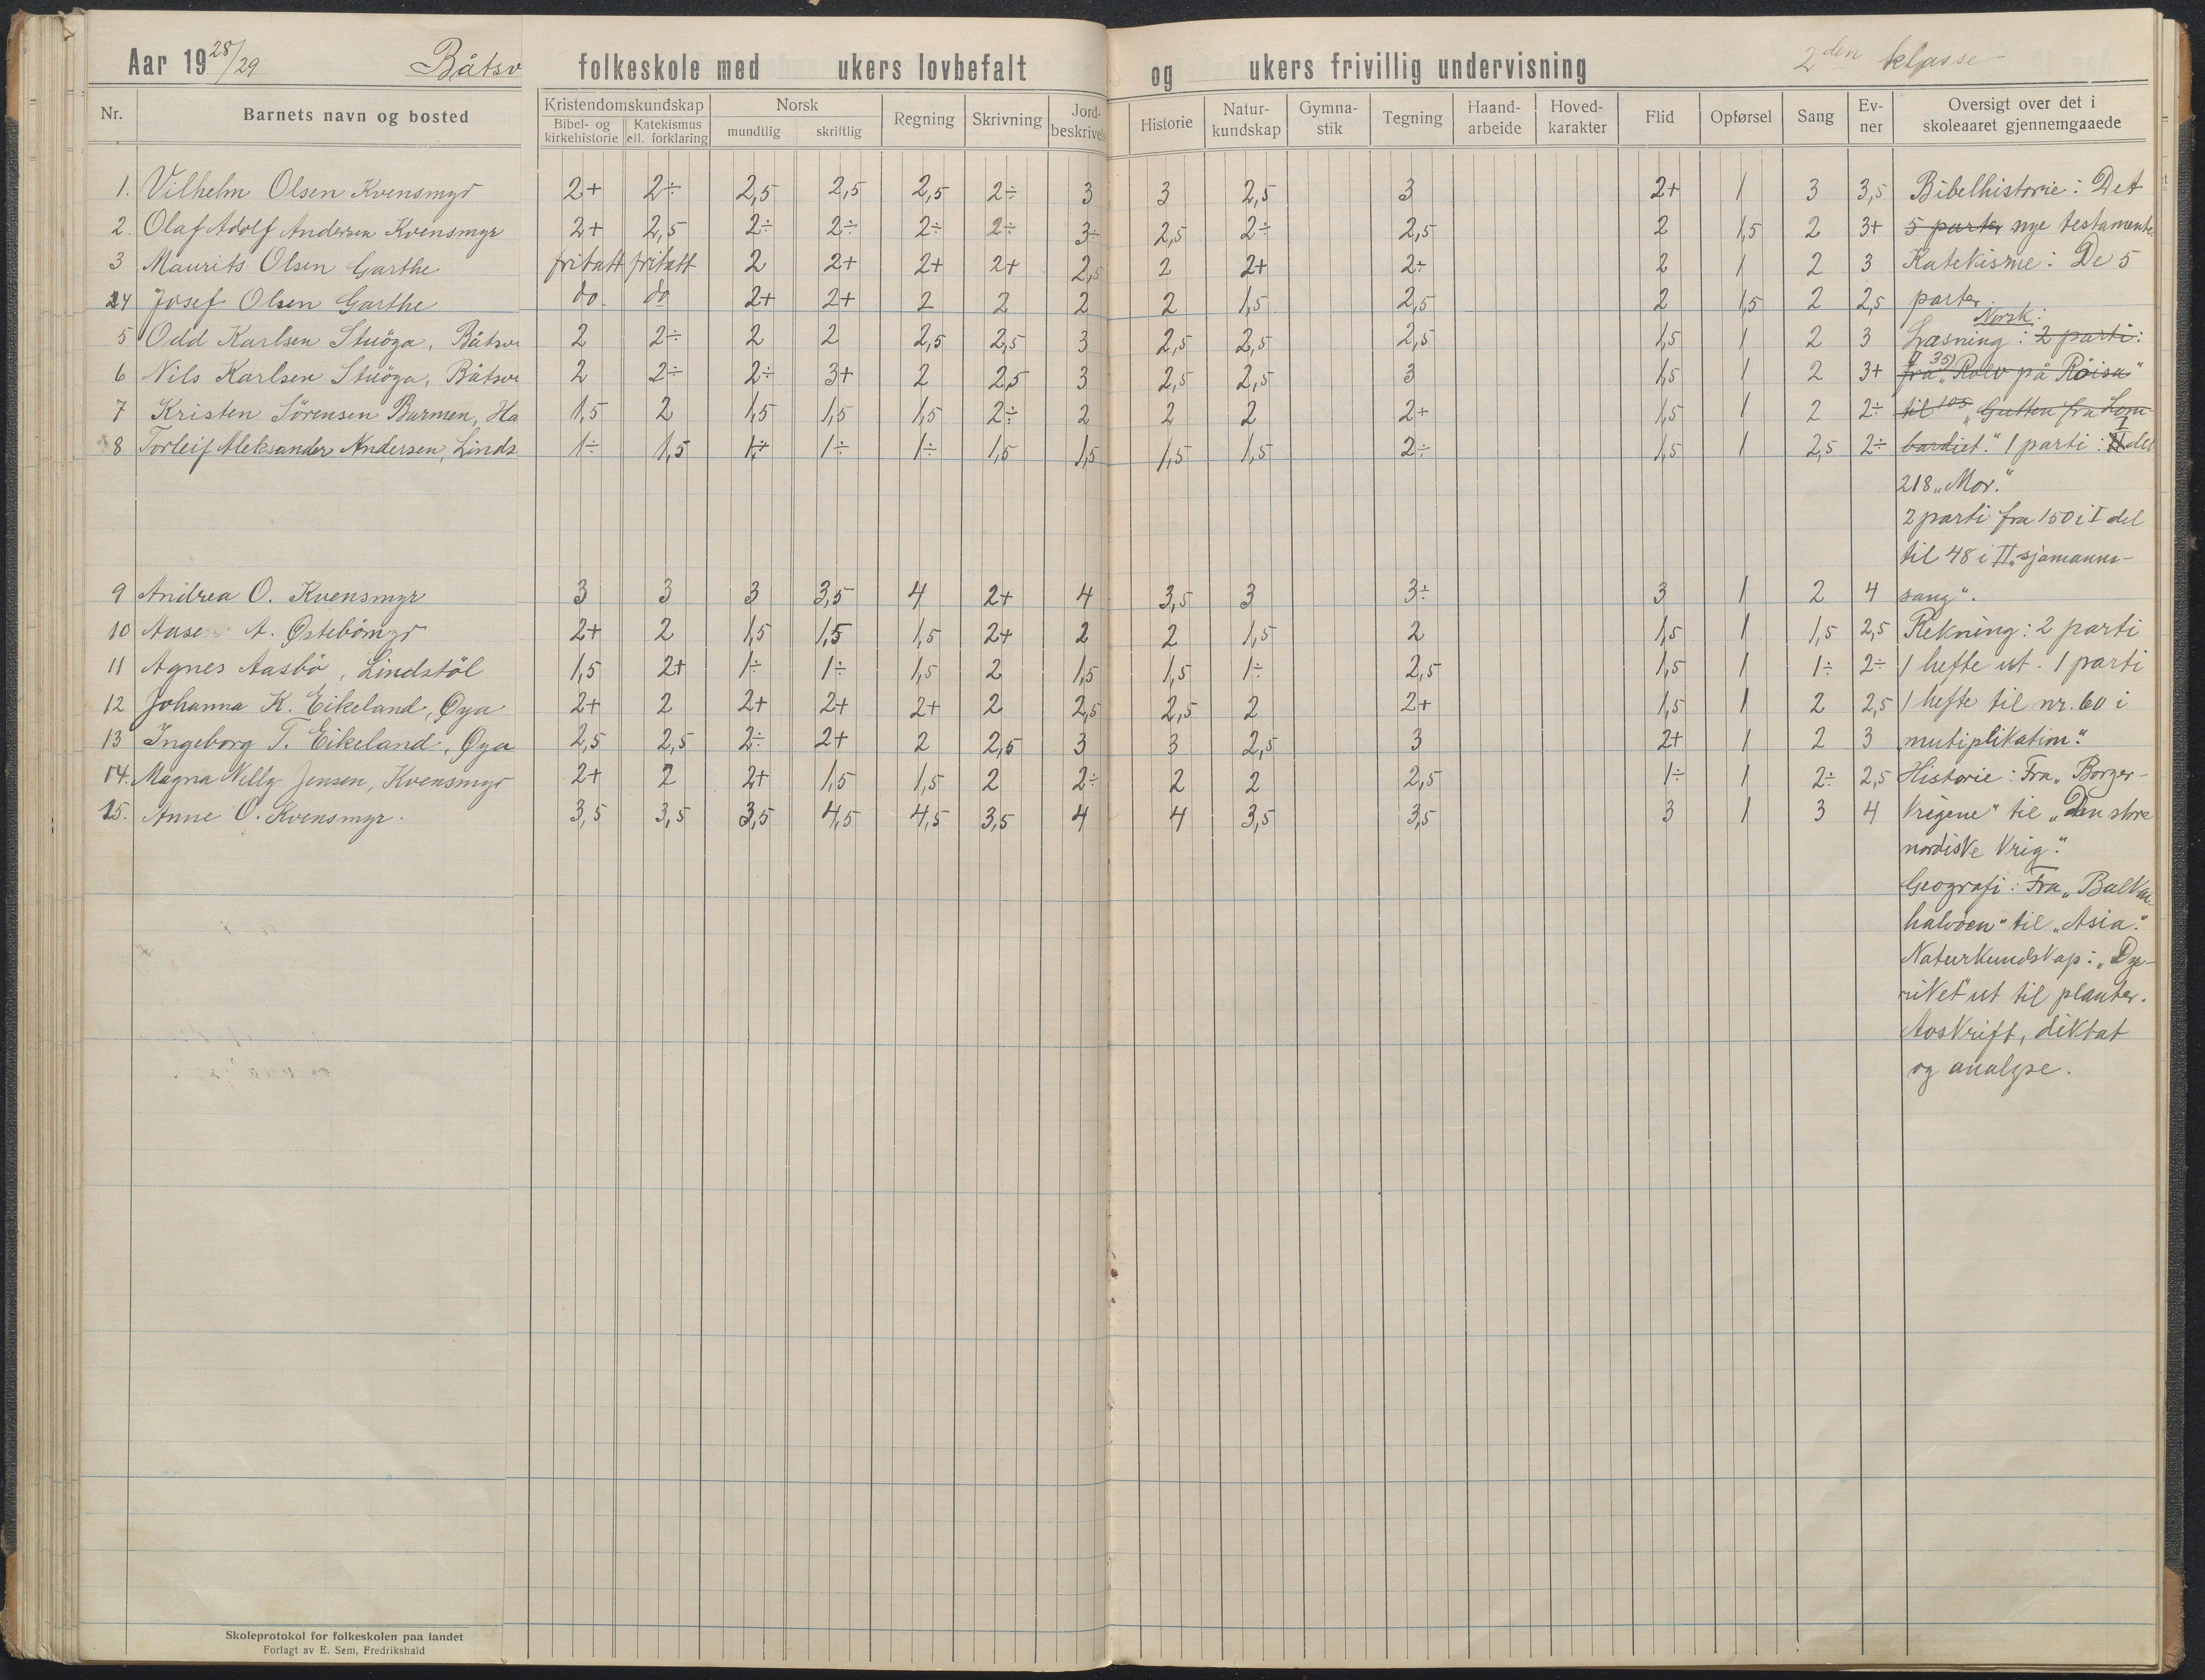 Aar 1928/29 Båtsv folkeskole med ukers lovbefalt og ukers frivillig undervisning 2den klasse
Nr. Barnets navn og bosted Kristendomskundskap Bibel- og kirkehistorie Katekismus ell. forklaring Norsk mundtlig skriftlig Regning Skrivning Jord-beskrivels Historie Natur-kundskap Gymna-stik Tegning Haand-arbeide Hoved-karakter Flid Opførsel Sang Ev-ner Oversigt over det i skoleaaret gjennemgaaede
1. Vilhelm Olsen Kvensmyr 2+ 2÷ 2,5 2,5 2,5 2÷ 3 3 2,5 3 2+ 1 3 3,5 Bibelhistorie: Det
2. Olaf Adolf Andersen Kvensmyr 2+ 2,5 2÷ 2÷ 2÷ 2÷ 3÷ 2,5 2÷ 2,5 2 1,5 2 3+ 5 parter nye testamente.
3 Maurits Olsen Garthe fritatt fritatt 2 2+ 2+ 2+ 2,5 2 2+ 2÷ 2 1 2 3 Katekisme: De 5
4 Josef Olsen Garthe do. do 2+ 2+ 2 2 2 2 1,5 2,5 2 1,5 2 2,5 parter.
Norsk:
5 Odd Karlsen Stuöga, Båtsv 2 2÷ 2 2 2,5 2,5 3 2,5 2,5 2,5 1,5 1 2 3 Læsning: 2 parti:
6 Nils Karlsen Stuöga, Båtsv 2 2÷ 2÷ 3+ 2 2,5 3 2,5 2,5 3 1,5 1 2 3+ II 35) fra "Rolv på Röisa"
7 Kristen Sörensen Barmen, Ha 1,5 2 1,5 1,5 1,5 2÷ 2 2 2 2+ 1,5 1 2 2÷ til 105 "Gutten fra Lom-
8 Torleif Aleksander Andersen, Linds 1÷ 1,5 1÷ 1÷ 1÷ 1,5 1,5 1,5 1,5 2÷ 1,5 1 2,5 2÷ bardiet." 1 parti: I del
218 "Mor."
2 parti fra 150 i I del
til 48 i II "sjømanns-
9 Andrea O. Kvensmyr 3 3 3 3,5 4 2+ 4 3,5 3 3÷ 3 1 2 4 sang".
10 Aase A. Østebömyr 2+ 2 1,5 1,5 1,5 2+ 2 2 1,5 2 1,5 1 1,5 2,5 Rekning: 2 parti
11 Agnes Aasbö, Lindstöl 1,5 2+ 1÷ 1÷ 1,5 2 1,5 1,5 1÷ 2,5 1,5 1 1÷ 2÷ 1 hefte ut. 1 parti
12 Johanna K. Eikeland, Øya 2+ 2 2+ 2+ 2+ 2 2,5 2,5 2 2+ 1,5 1 2 2,5 1 hefte til nr. 60 i
13 Ingeborg T. Eikeland, Øya 2,5 2,5 2÷ 2+ 2 2,5 3 3 2,5 3 2+ 1 2 3 "mutiplikation".
14. Magna Nelly Jensen, Kvensmyr 2+ 2 2+ 1,5 1,5 2 2÷ 2 2 2,5 1÷ 1 2÷ 2,5 Historie: Fra "Borger-
15. Anne O. Kvensmyr. 3,5 3,5 3,5 4,5 4,5 3,5 4 4 3,5 3,5 3 1 3 4 krigene" til "Den store
nordiske krig".
Geografi: Fra "Balkan-
halvöen" til "Asia".
Naturkundskap: "Dyr-
riket" ut til planter.
Avskrift, diktat
og analyse.
Skoleprotokol for folkeskolen paa landet
Forlagt av E. Sem, Fredrikshald